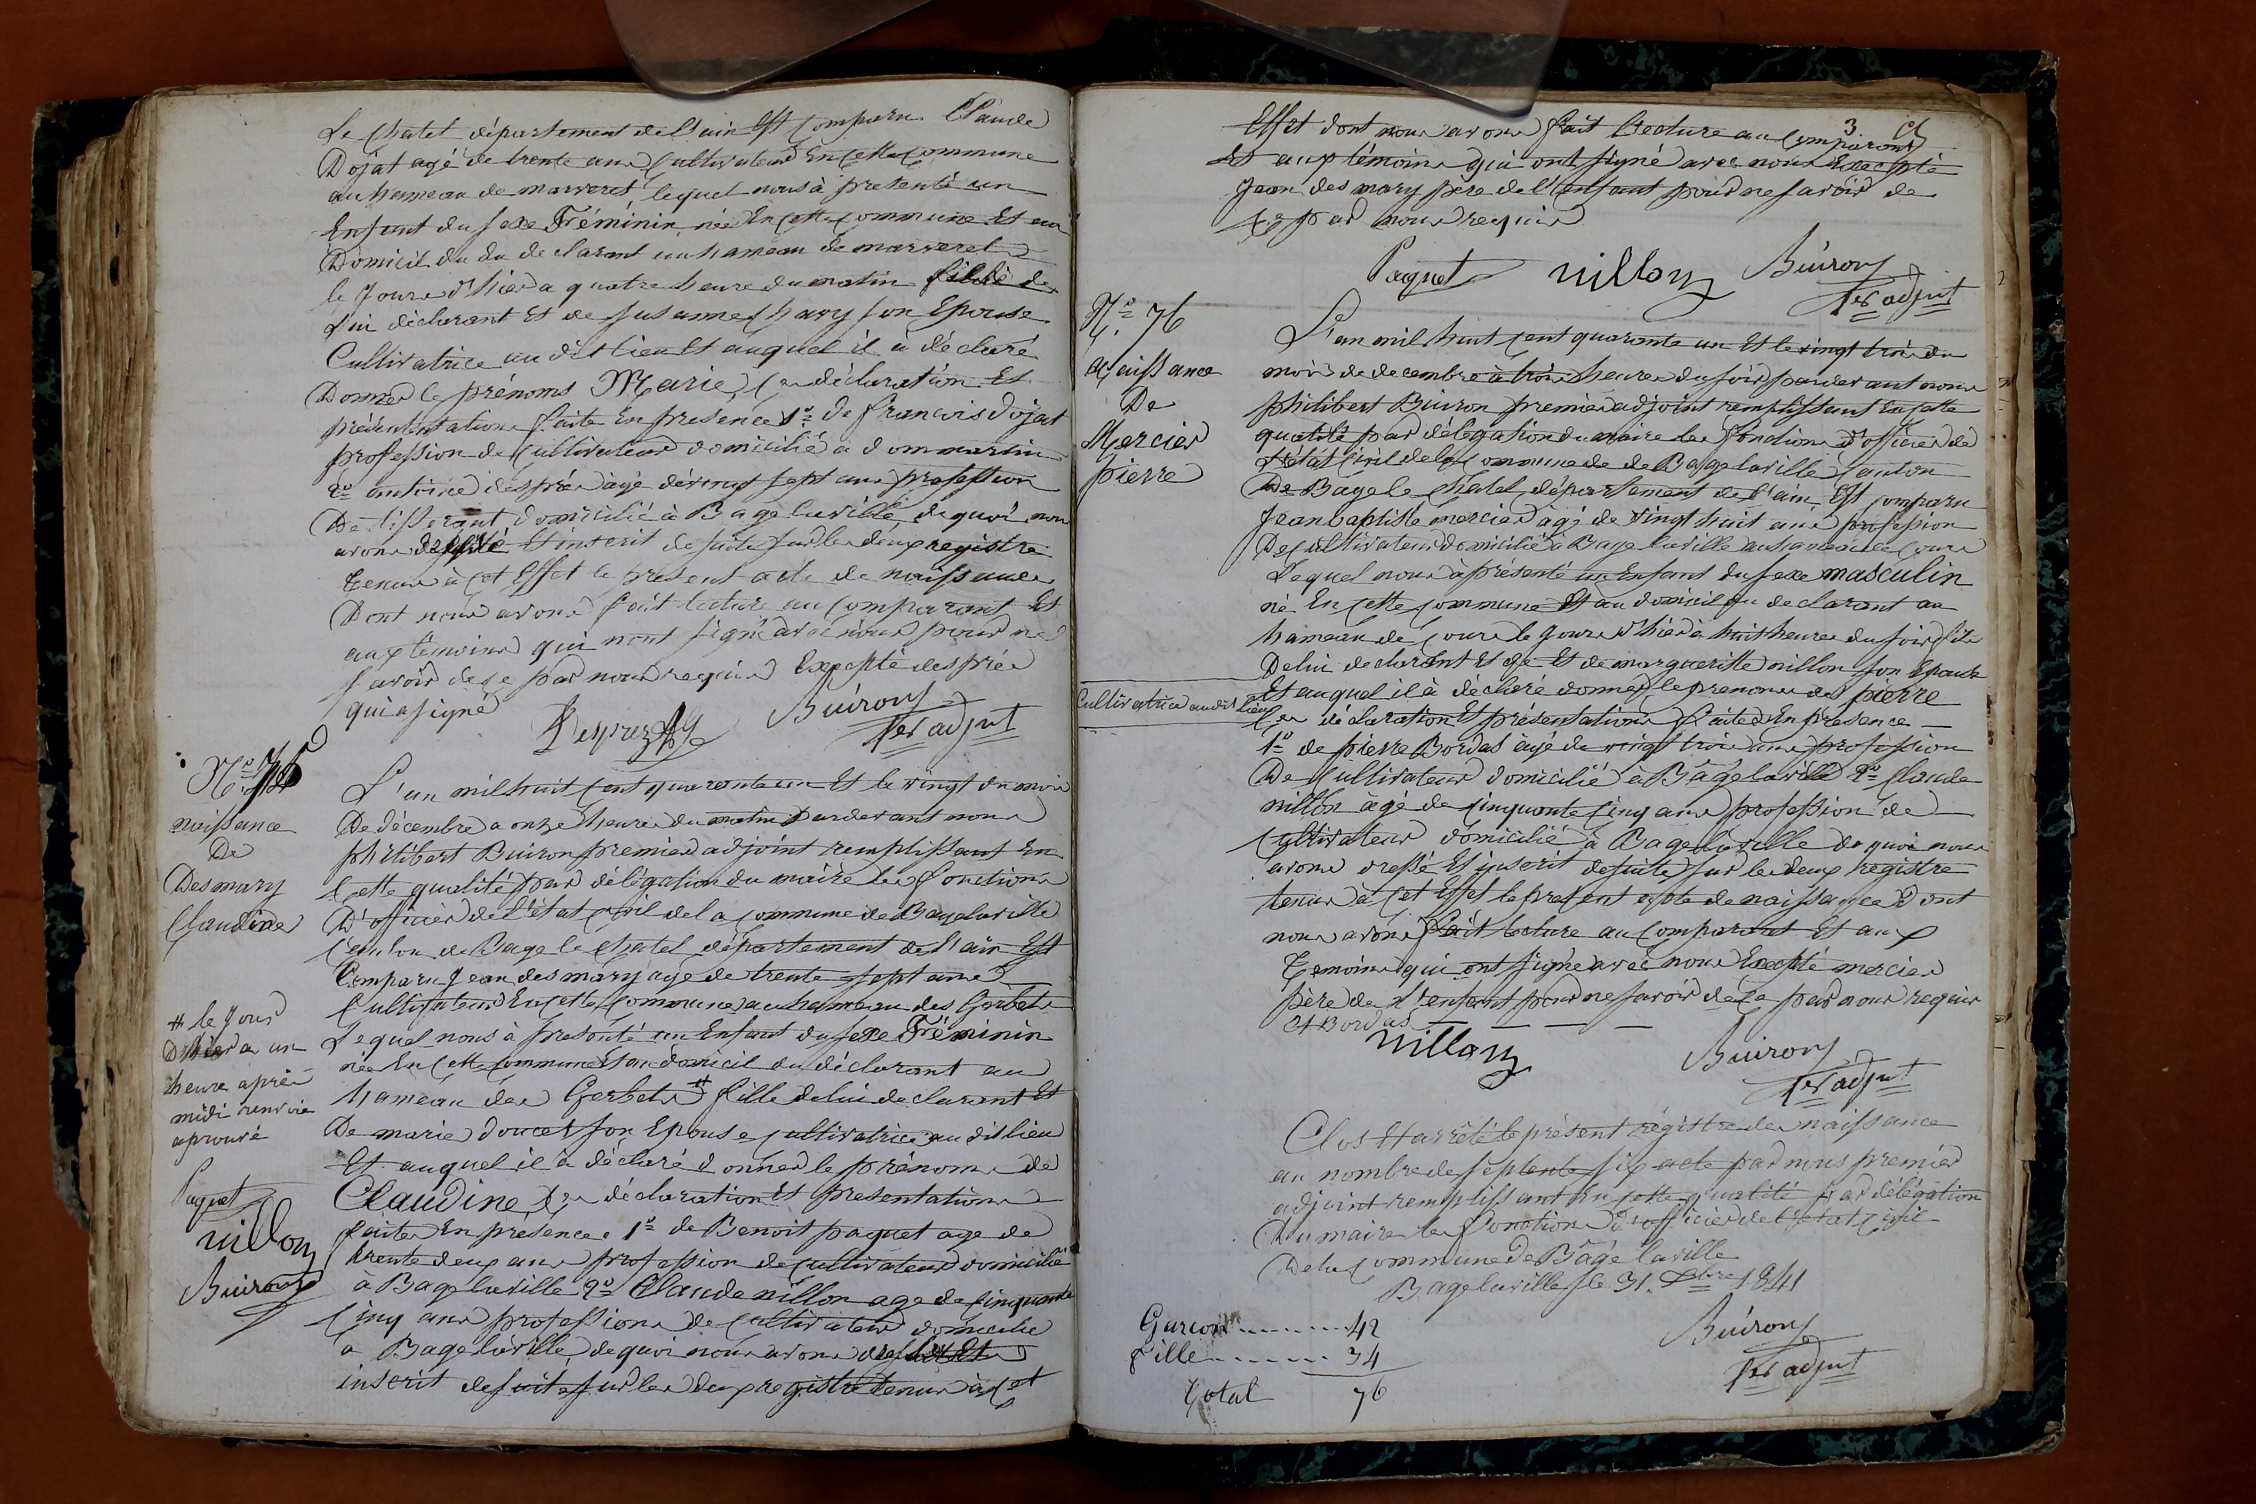 Le Chatel département de l'ain Est Comparu Claude
Dojat agé de trente ans Cultivateur En Cette Commune
au hameau de marveret, lequel nous à presenté un
Enfant du sexe Fréminin née En Cette Commune Et au
Domicil du du declarant au hameau de marveret
le Jours d'hier a quatre heure du matin fille de
Lui déclarant Et de Susanne Chary son Epouse
Cultivatrice au dit lieu Et auquel il a déclaré
Donner le prénoms Marie, Ces déclaration Et
présentations faite En presence 1º de francois dojat
profession de Cultivateur domicilié a dommartin
2º antoine després âgé de vingt sept ans profession
De tisserant domicilié à Bage la ville, de quoi nous
avons dressé Et inscrit de suite sur les deux registre
tenus à Cet Effet le présent acte de naissance
Dont nous avons fait lecture au Comparant Et
aux témoins qui nont signé avec nous pour ne
savoir de ce par nous requis Excepté després
qui a signé
Desprez Buiron
1er adjut
Nº 75
naissance
De
Desmary
Claudine
L'an mil huit Cent quarante un Et le vingt du mois
De décembre a onze heures du matin Pardevant nous
philibert Buiron premier adjoint remplissant En
Cette qualité par délégation du maire les fonctions
D'officier de l'état Civil de la Commune de Bage la ville
Canton de Bage le Chatel département de l'ain Est
Comparu Jean desmary agé de trente sept ans
Cultivateur En Cette Commune au hameau des Gerbets
Lequel nous à presenté un Enfant du sexe Fréminin
née En Cette Commune Et au domicil du déclarant au
hameau des Gerbets # fille de lui declarant Et
De marie doucet son Epouse Cultivatrice au dit lieu
Et auquel il à déclaré donner le prénoms de
Claudine, Ces déclaration Et presentations
faites En presence 1º de Benoit paquet age de
trente deux ans profession de Cultivateur domicilié
à Bage la ville 2º Claude nillon age de Cinquante
Cinq ans profession de Cultivateur domicilié
a Bage la ville de quoi nous avons dressé Et
inscrit de suite sur les deux registre tenus à Cet
# le Jour
D'hier a un
heure après
midi renvoie
aprouvé
Paquet
nillon
Buiron
3
Effet dont nous avons fait Lecture au Comparant
Et aux témoins qui ont signé avec nous Excepté
Jean desmary père de l'enfant pour ne savoir de
Ce par nous requis
Paquet nillon Buiron
1er adjut
Nº 76
Naissance
De
Mercier
pierre
L'an mil huit Cent quarante un Et le vingt trois du
mois de decembre à trois heures du soir pardevant nous
philibert Buiron premier adjoint remplissant En Cette
qualité par délégation du maire les fonctions d'officier de
L'état Civil de la Commune de de Bage la ville Canton
De Bage le Chatel, département de l'ain, Est Comparu
Jean baptiste mercier âgé de vingt huit ans profession
De Cultivateur domicilié à Bage la ville au hameau de Cours
Lequel nous à présenté un Enfant du sexe masculin
né En Cette Commune Et au domicil du declarant au
hameau de Cours le Jours d'hier à huit heures du soir fils
De lui declarant Et de Et de margueritte nillon son Epouse
Cultivatrice au dit lieu
Et auquel il à déclaré donner le prenoms de pierre
Ces déclaration Et présentations faites En presence
1º de pierre Bordas âgé de vingt trois ans profession
De Cultivateur domicilié à Bâgé la ville 2º Claude
nillon âgé de Cinquante Cinq ans profession de
Cultivateur domicilié à Bage la ville de quoi nous
avons dressé Et inscrit de suite sur les deux registre
tenus à Cet Effet le présent acte de naissance Dont
nous avons fait lecture au Comparant Et aux
Témoins qui ont signé avec nous Excepté mercier
père de l'enfant pour ne savoir de Ce par nous requis
Et Bordas
nillon Buiron
1er adjut
Clos Et arrêté le présent régistre des naissance
au nombre de septente six acte par nous premier
adjoint remplissant En Cette qualité par délégation
Du maire les fonctions d'officier de l'état Civil
De la Commune De Bâgé la ville
Bage la ville le 31. Xbre 1841
Buiron
1er adjut
Garcon 42
fille 34
Total 76